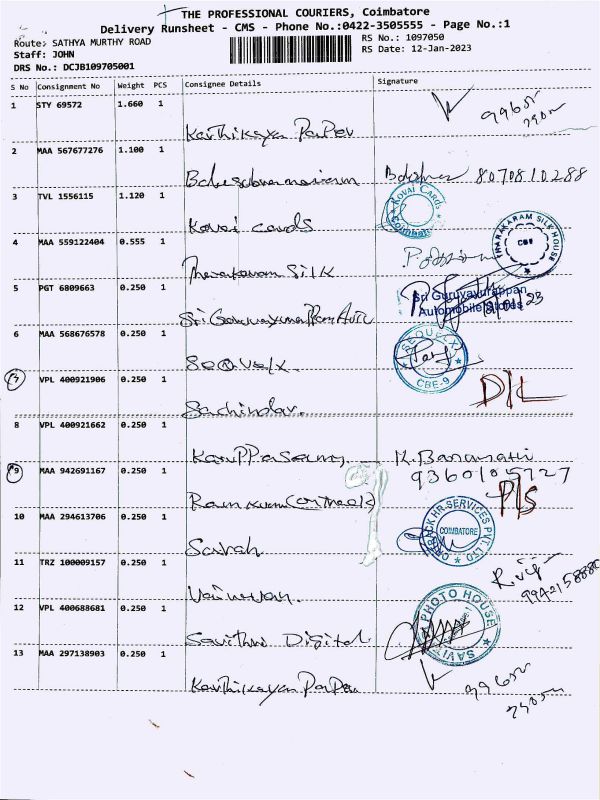 THE PROFESSIONAL COURIERS, Coimbatore
Delivery Runsheet - CMS - Phone No.:0422-3505555 - Page No.:1
Route: SATHYA MURTHY ROAD RS No.: 1097050
Staff: JOHN RS Date: 12-Jan-2023
DRS No.: DCJB109705001
S No Consignment No Weight PCS Consignee Details Signature
1 STY 69572 1.660 1
Karthikayan Paper
2 MAA 567677276 1.100 1
8070810288
3 TVL 1556115 1.120 1
Kovai cards
KOVAI CARDS
4 MAA 559122404 0.555 1
Tharakaram Silk
THARAKARAM SILK HOUSE
CBE
5 PGT 6809663 0.250 1
Sri Guruvayurappan Auto
Sri Guruvayurappan
Automobile Stores
6 MAA 568676578 0.250 1
Sequelx
SEQUELX
CBE-9
7 VPL 400921906 0.250 1
Sachindar.
D/L
8 VPL 400921662 0.250 1
Karuppasamy
9360105727
9 MAA 942691167 0.250 1
P/S
10 MAA 294613706 0.250 1
Sarah
HR SERVICES PVT. LTD
COIMBATORE
11 TRZ 100009157 0.250 1
12 VPL 400688681 0.250 1
Savithri Digital
PHOTO HOUSE
13 MAA 297138903 0.250 1
Karthikayan Paper